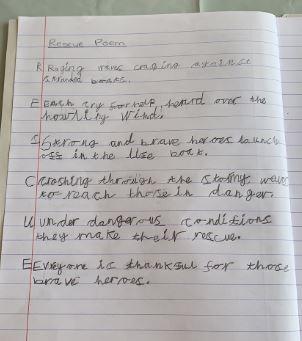 Rescue Poem
R Raging waves craging against
stranded boats.
E Each cry for help, heard over the
howling wind.
S Strong and brave heroes launch
off in the life boat.
C Crashing through the stormy waves
to reach those in danger.
U under dangerous conditions
they make their rescue.
E Everyone is thankful for those
brave heroes.